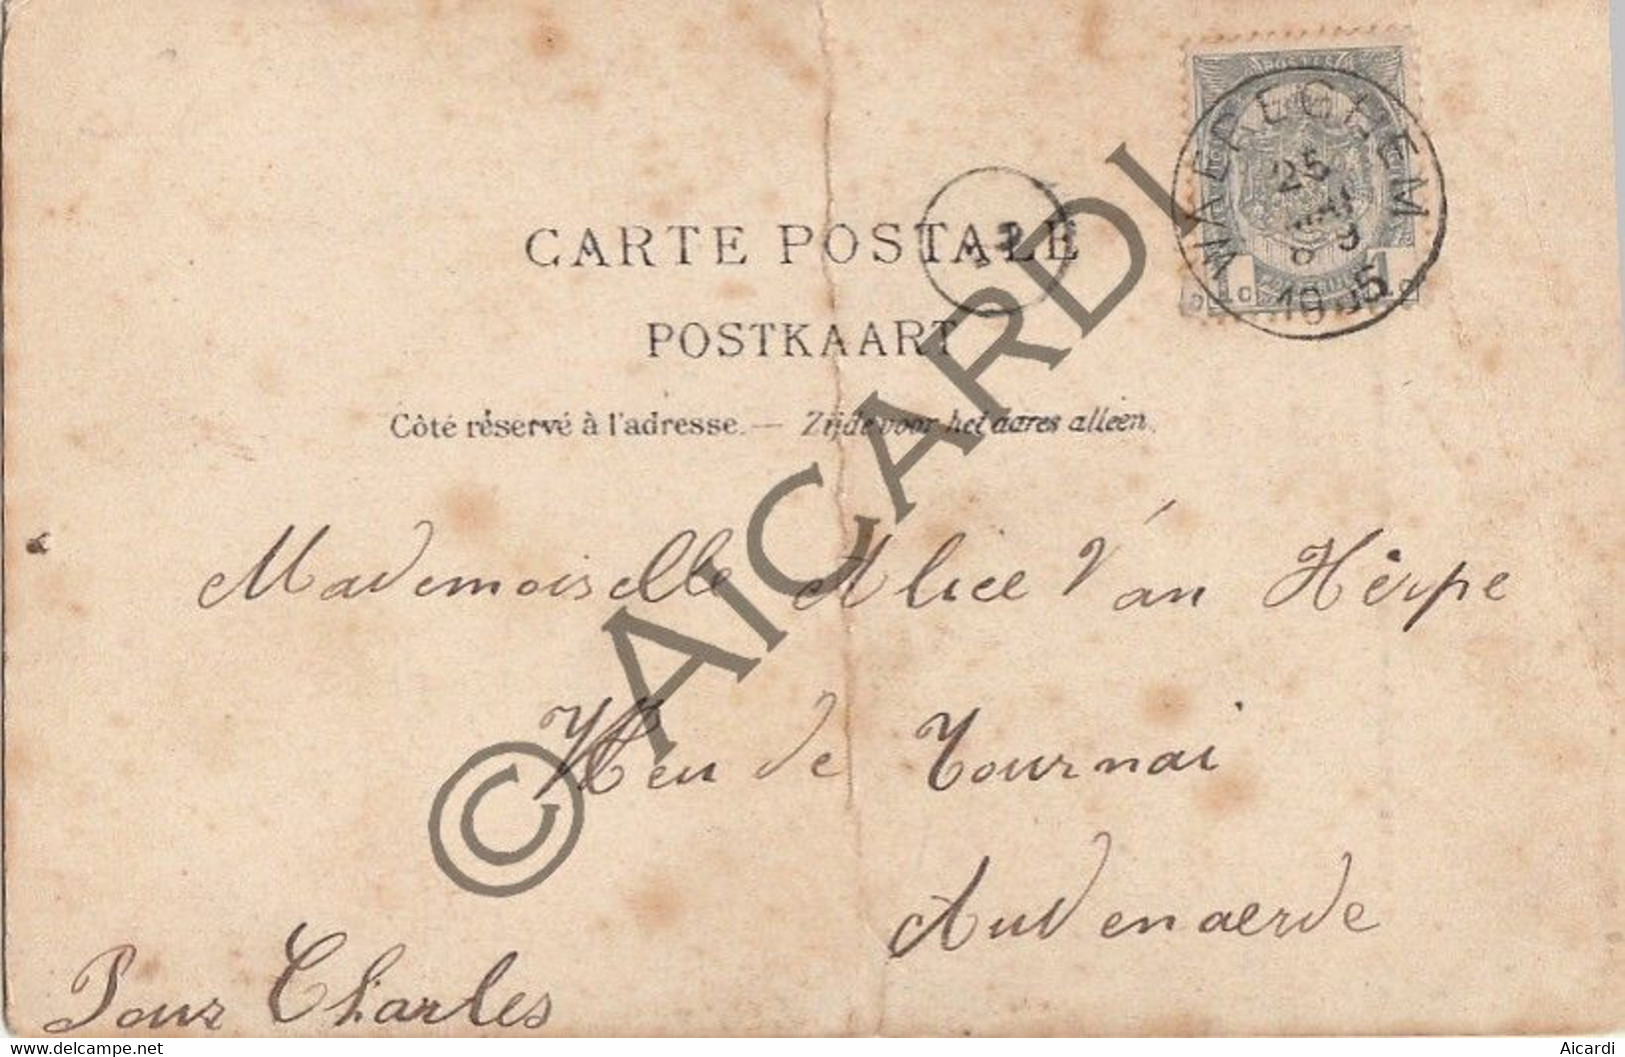 POSTES
WAEREGHEM
25
MAI
1905
1 C
CARTE POSTALE
POSTKAART
Côté réservé à l'adresse. — Zijde voor het adres alleen.
Mademoiselle Alice Van Hèrpe
de Tournai
Audenaerde
Pour Charles
© AICARDI
Aicardi